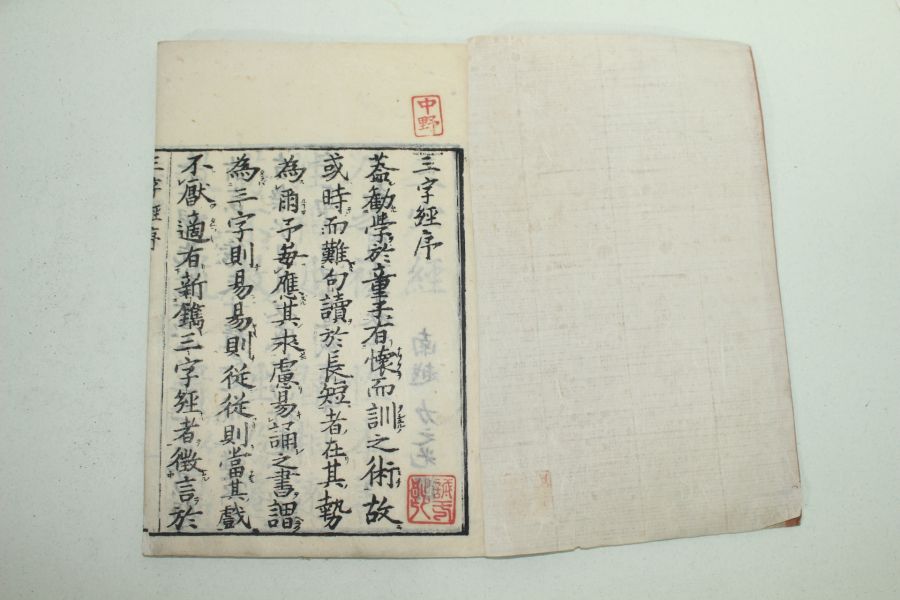 中野
三字經序
蓋勧學於童子有懐而訓之術故
或時而難句讀於長短者在其勢
為爾予毎應其求慮易誦之書謂
為三字則易易則従従則當其戯
不厭適有新鐫三字經者徴言於
三字經序